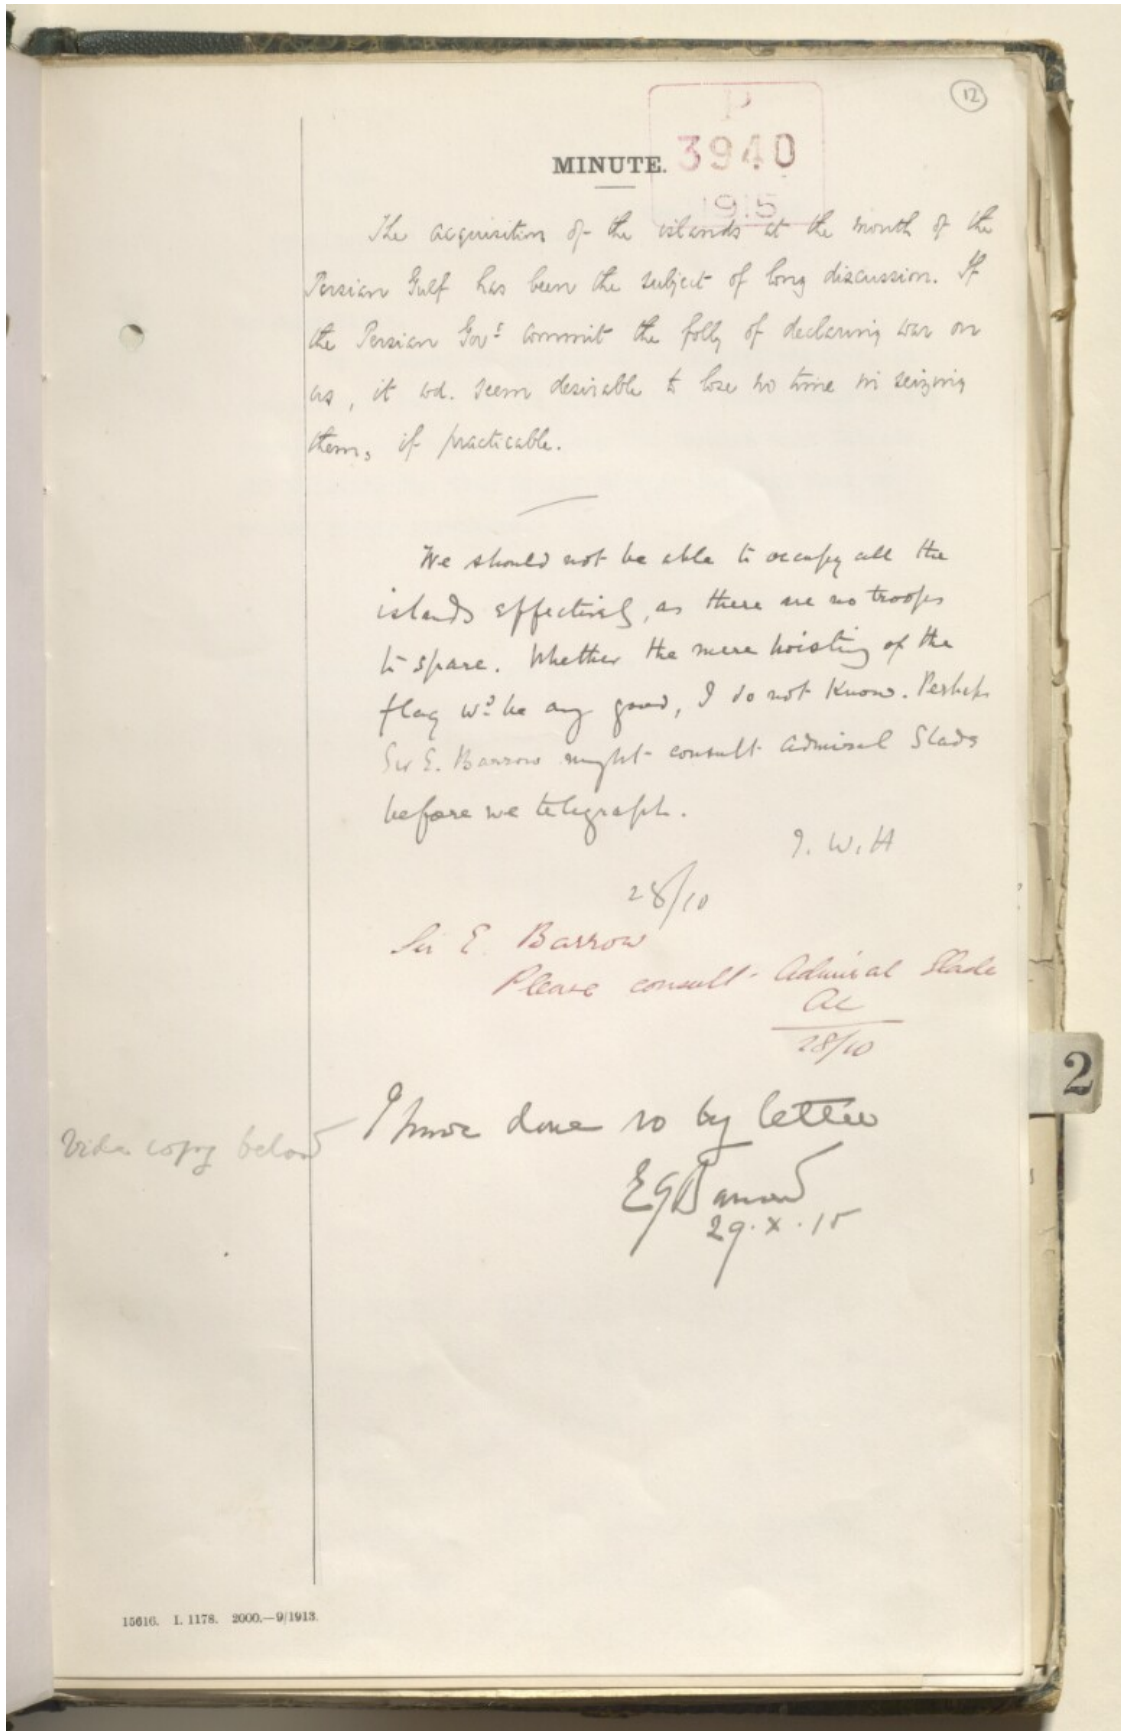 12
P
3940
1915
MINUTE.
The acquisition of the islands at the mouth of the
Persian Gulf has been the subject of long discussion. If
the Persian Govt commit the folly of declaring war on
us, it wd. seem desirable to lose no time in seizing
them, if practicable.
We should not be able to occupy all the
islands effectively, as there are no troops
to spare. Whether the mere hoisting of the
flag wd be any good, I do not know. Perhaps
Sir E. Barrow might consult Admiral Slade
before we telegraph.
T. W. H
28/10
Sir E Barrow
Please consult Admiral Slade
AC
28/10
I have done so by letter
Vide copy below
EGBarrow
29.X.15
2
15616. I. 1178. 2000.—9/1913.